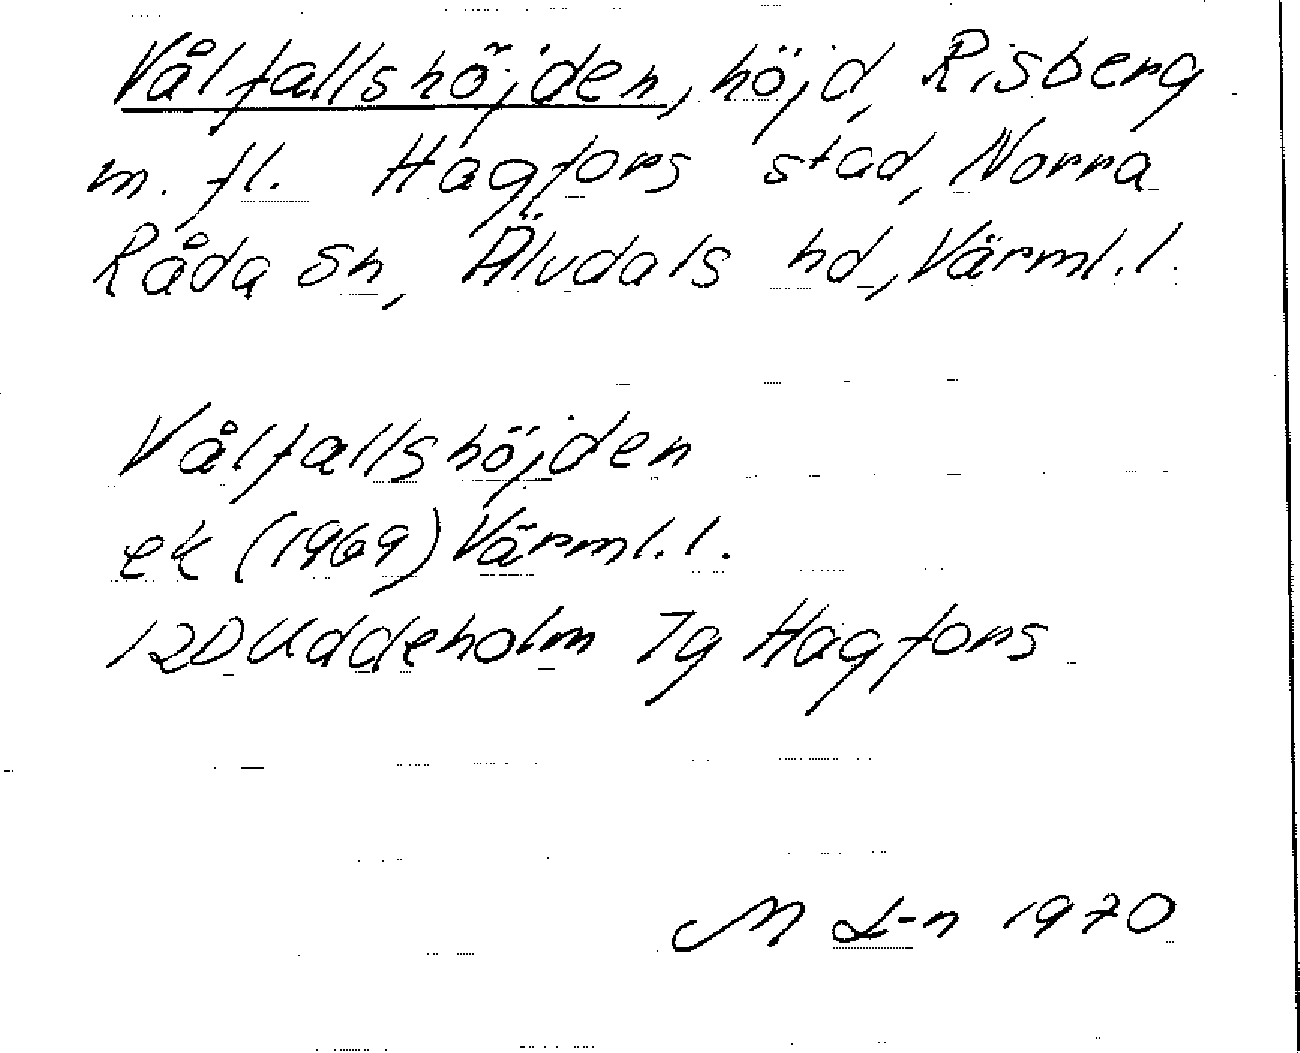 Vålfallshöjden, höjd, Risberg
m. fl. Hagfors stad, Norra
Råda sn, Älvdals hd, Värml. l.
Vålfallshöjden
ek (1969) Värml. l.
12D Uddeholm 7g Hagfors
M L-n 1970